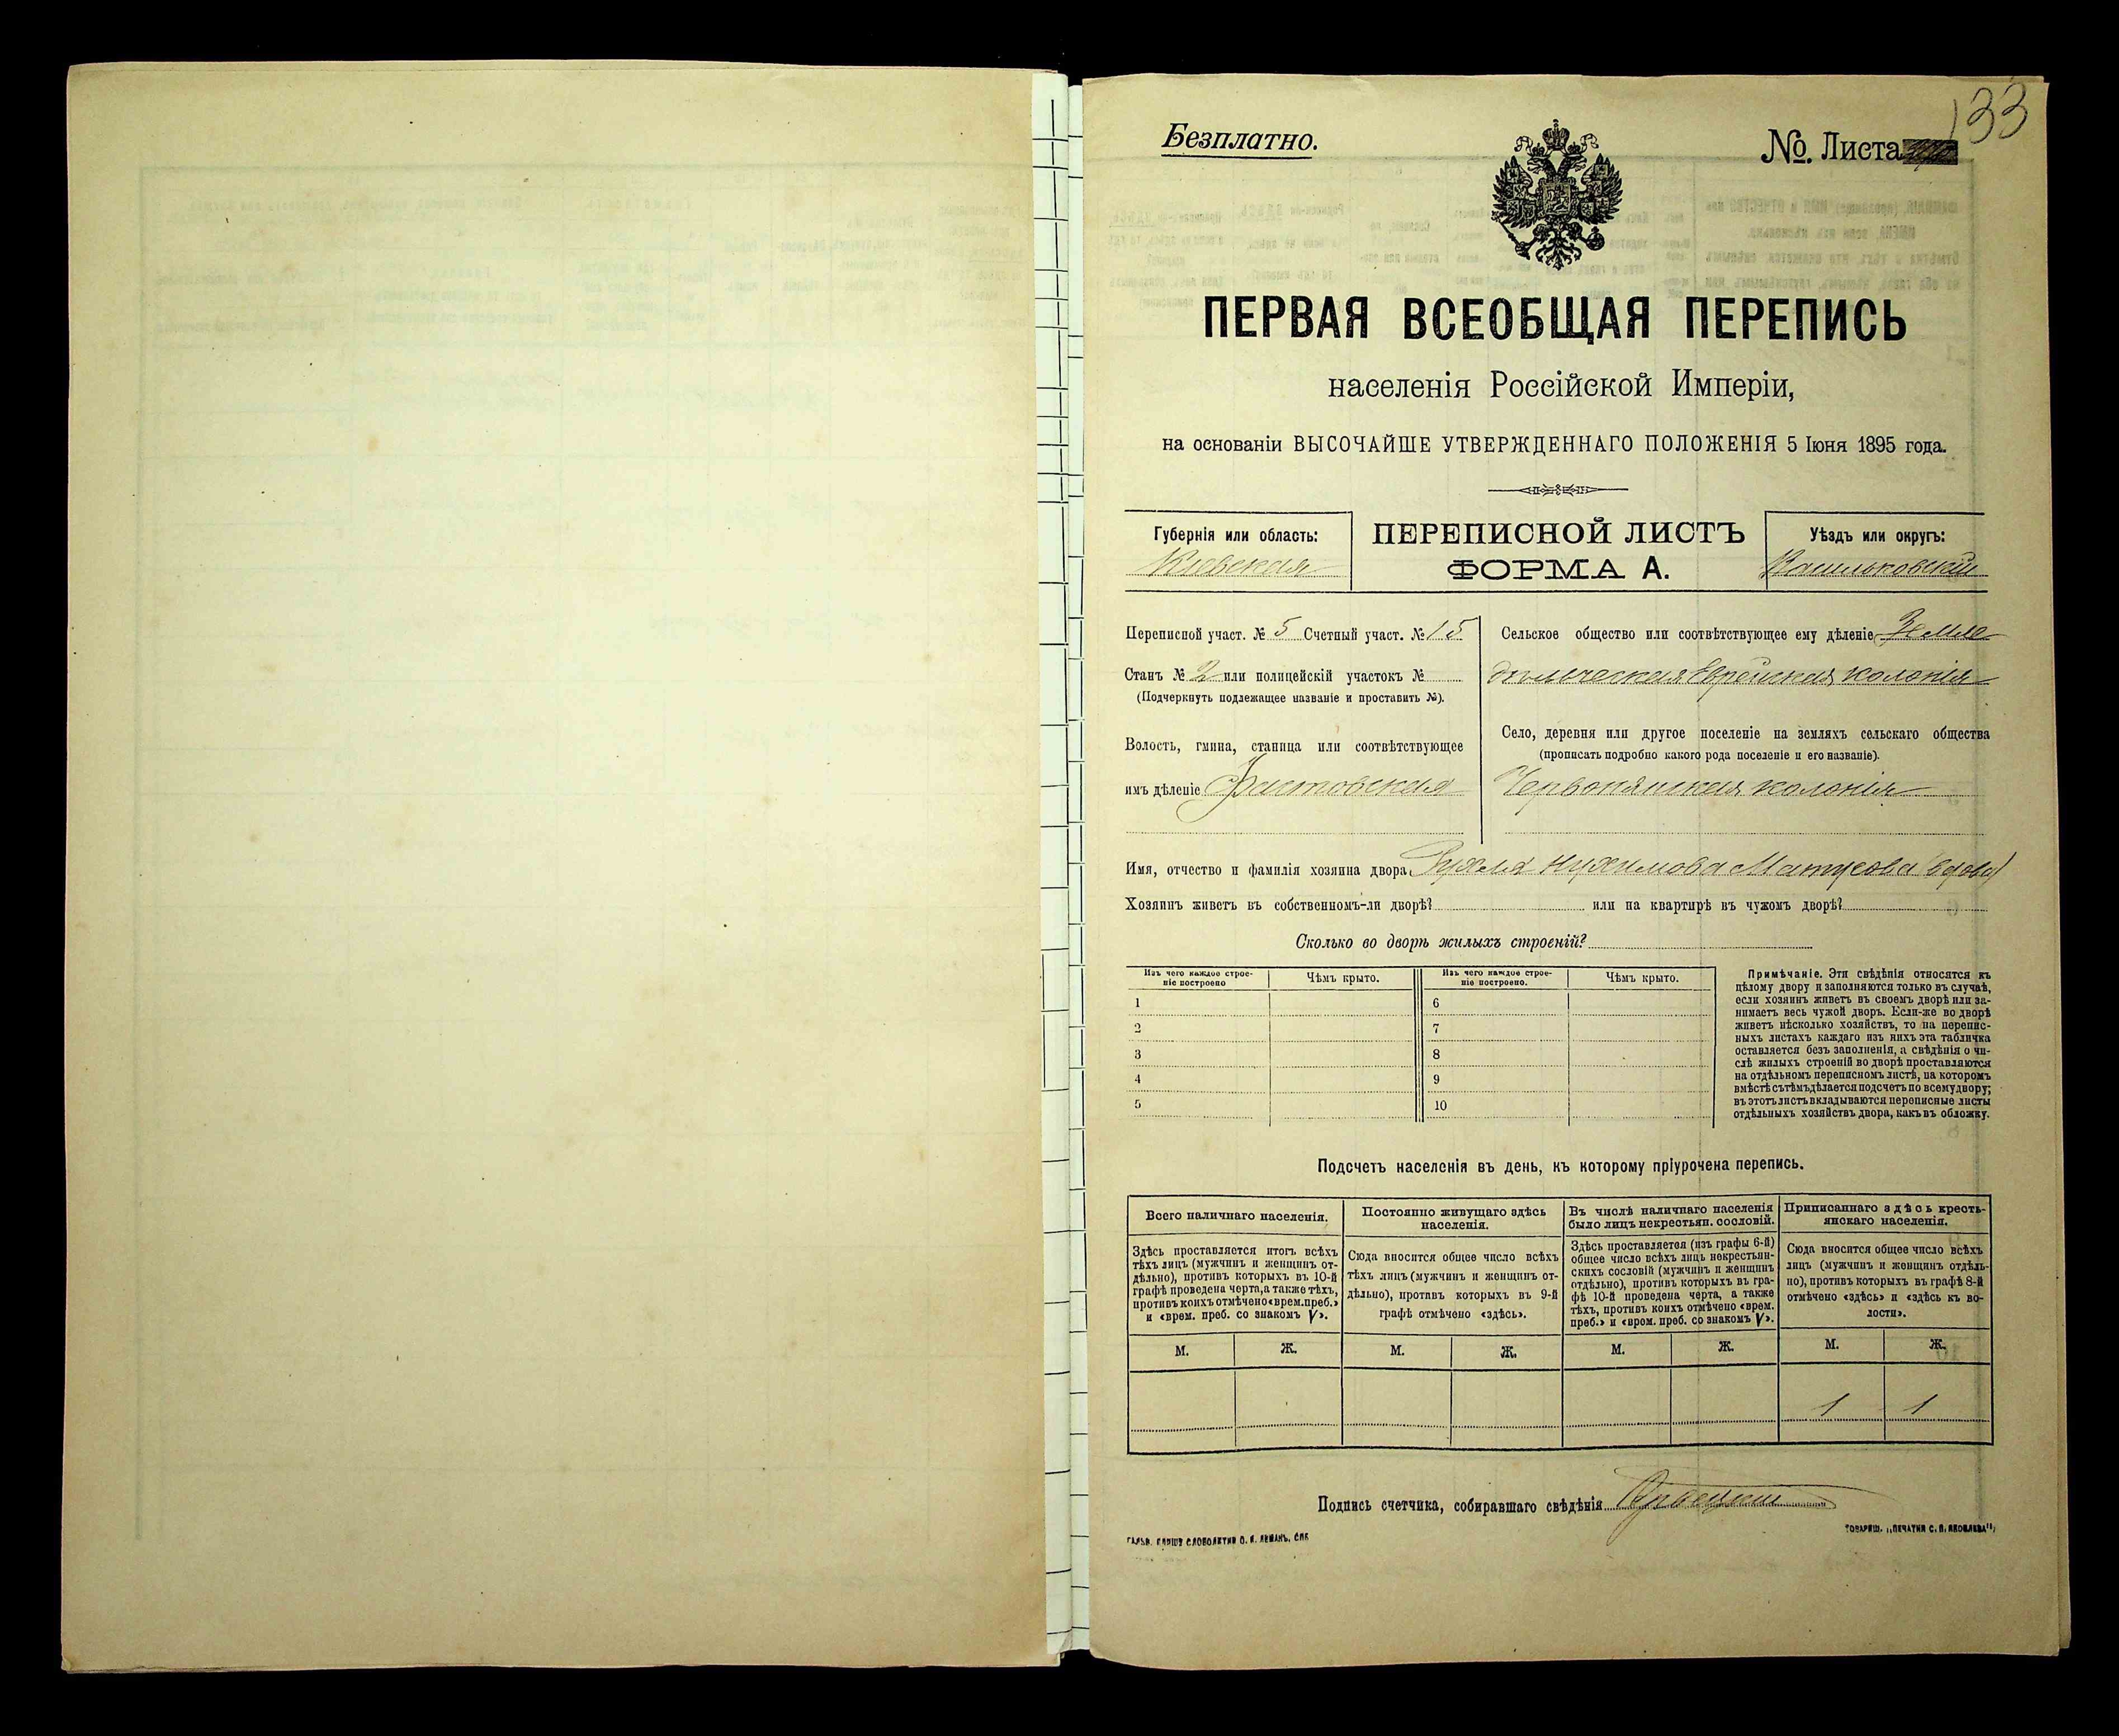 133
Безплатно.
№. Листа
ПЕРВАЯ ВСЕОБЩАЯ ПЕРЕПИСЬ
населенія Россійской Имперіи,
на основаніи ВЫСОЧАЙШЕ УТВЕРЖДЕННАГО ПОЛОЖЕНІЯ 5 Іюня 1895 года.
Губернія или область:
Кіевская
ПЕРЕПИСНОЙ ЛИСТЪ
ФОРМА А.
Уѣздъ или округъ:
Васильковскій
Переписной участ. № 5 Счетный участ. № 15
Станъ № 2 или полицейскій участокъ №
(Подчеркнуть подлежащее названіе и проставить №).
Волость, гмина, станица или соотвѣтствующее
имъ дѣленіе Фастовская
Сельское общество или соотвѣтствующее ему дѣленіе Земле
дѣльческая Еврейская колонія
Село, деревня или другое поселеніе на земляхъ сельскаго общества
(прописать подробно какого рода поселеніе и его названіе).
Червонянская колонія
Имя, отчество и фамилія хозяина двора Рухля Нухимова Матусова (вдова)
Хозяинъ живетъ въ собственномъ-ли дворѣ? или на квартирѣ въ чужомъ дворѣ?
Сколько во дворѣ жилыхъ строеній?
Изъ чего каждое строе-
ніе построено
Чѣмъ крыто.
Изъ чего каждое строе-
ніе построено.
Чѣмъ крыто.
1
2
3
4
5
6
7
8
9
10
Примѣчаніе. Эти свѣдѣнія относятся къ
цѣлому двору и заполняются только въ случаѣ,
если хозяинъ живетъ въ своемъ дворѣ или за-
нимаетъ весь чужой дворъ. Если-же во дворѣ
живетъ нѣсколько хозяйствъ, то на перепис-
ныхъ листахъ каждаго изъ нихъ эта табличка
оставляется безъ заполненія, а свѣдѣнія о чи-
слѣ жилыхъ строеній во дворѣ проставляются
на отдѣльномъ переписномъ листѣ, на которомъ
вмѣстѣ съ тѣмъ дѣлается подсчетъ по всему двору;
въ этотъ листъ вкладываются переписные листы
отдѣльныхъ хозяйствъ двора, какъ въ обложку.
Подсчетъ населенія въ день, къ которому пріурочена перепись.
Всего наличнаго населенія.
Здѣсь проставляется итогъ всѣхъ
тѣхъ лицъ (мужчинъ и женщинъ от-
дѣльно), противъ которыхъ въ 10-й
графѣ проведена черта, а также тѣхъ,
противъ коихъ отмѣчено «врем. преб.»
и «врем. преб. со знакомъ V».
Постоянно живущаго здѣсь
населенія.
Сюда вносится общее число всѣхъ
тѣхъ лицъ (мужчинъ и женщинъ от-
дѣльно), противъ которыхъ въ 9-й
графѣ отмѣчено «здѣсь».
Въ числѣ наличнаго населенія
было лицъ некрестьян. сословій.
Здѣсь проставляется (изъ графы 6-й)
общее число всѣхъ лицъ некрестьян-
скихъ сословій (мужчинъ и женщинъ
отдѣльно), противъ которыхъ въ гра-
фѣ 10-й проведена черта, а также
тѣхъ, противъ коихъ отмѣчено «врем.
преб.» и «врем. преб. со знакомъ V».
Приписаннаго здѣсь кресть-
янскаго населенія.
Сюда вносится общее число всѣхъ
лицъ (мужчинъ и женщинъ отдѣль-
но), противъ которыхъ въ графѣ 8-й
отмѣчено «здѣсь» и «здѣсь къ во-
лости».
М. Ж. М. Ж. М. Ж. М. Ж.
1 1
Подпись счетчика, собиравшаго свѣдѣнія
ТОВАРИЩ. „ПЕЧАТНЯ С. П. ЯКОВЛЕВА“